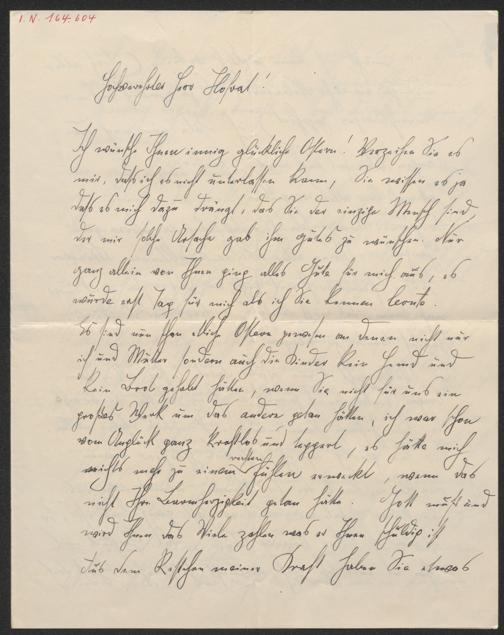 I. N. 164.604
Hochverehrter Herr Hofrat!
Ich wünsche Ihnen innig glückliche Ostern! Verzeihen Sie es
mir, daß ich es nicht unterlassen kann, Sie wissen es ja
daß es mich dazu drängt, das Sie der einzige Mensch sind,
der mir solche Ursache gab ihm gutes zu wünschen. Nur
ganz allein von Ihnen ging alles Gute für mich aus, es
wurde erst Tag für mich als ich Sie kennen lernte.
Es sind nun schon etliche Ostern gewesen an denen nicht nur
ich und Mutter sondern auch die Kinder kein Hemd und
kein Brot gehabt hätten, wenn Sie nicht für uns ein
großes Werk um das andere getan hätten, ich war schon
vom Unglück ganz kraftlos und, es hätte mich
nichts mehr zu einem Fühlen erweckt, wenn das
nicht Ihre Barmherzigkeit getan hätte. Gott muß und
wird Ihnen das Viele zahlen was er Ihnen schuldig ist
Aus dem Restchen meiner Kraft haben Sie etwas